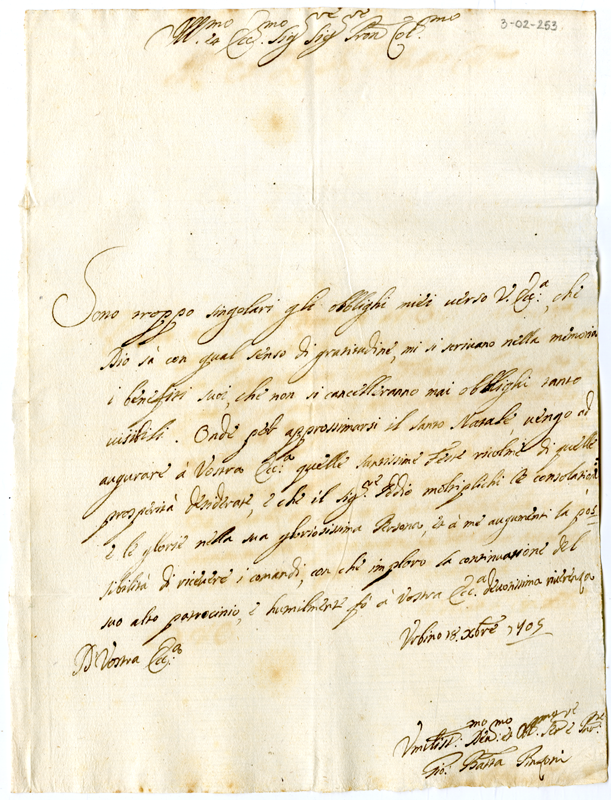 3-02-253
Ill.mo et Ecc.mo Sig.re Sig.re Pron Col.mo
Sono troppo singolari gli obblighi miei verso V. Ecc.a, che
Dio sà con qual senso di gratitudine, mi si scrivano nella memoria
i benefizi suoi, che non si cancelleranno mai obblighi tanto
visibili. Onde pell' approssimarsi il Santo Natale vengo ad
augurare à Vostra Ecc.a quelle santissime feste ricolme di quelle
prosperità desiderate, e che il Sig.re Iddio moltiplichi le consolationi
e le glorie nella sua gloriosissima Persona, et à me augumenti la pos-
sibilità di ricevere i comandi, con che imploro la continuazione del
suo alto patrocinio, e humilmente fò à Vostra Ecc.a devotissima riverenza
Di Vostra Ecc.a
Urbino 18. Xbre 1705
Umiliss.mo Dev.mo et Obl.mo Ser.re
Gio. Batta